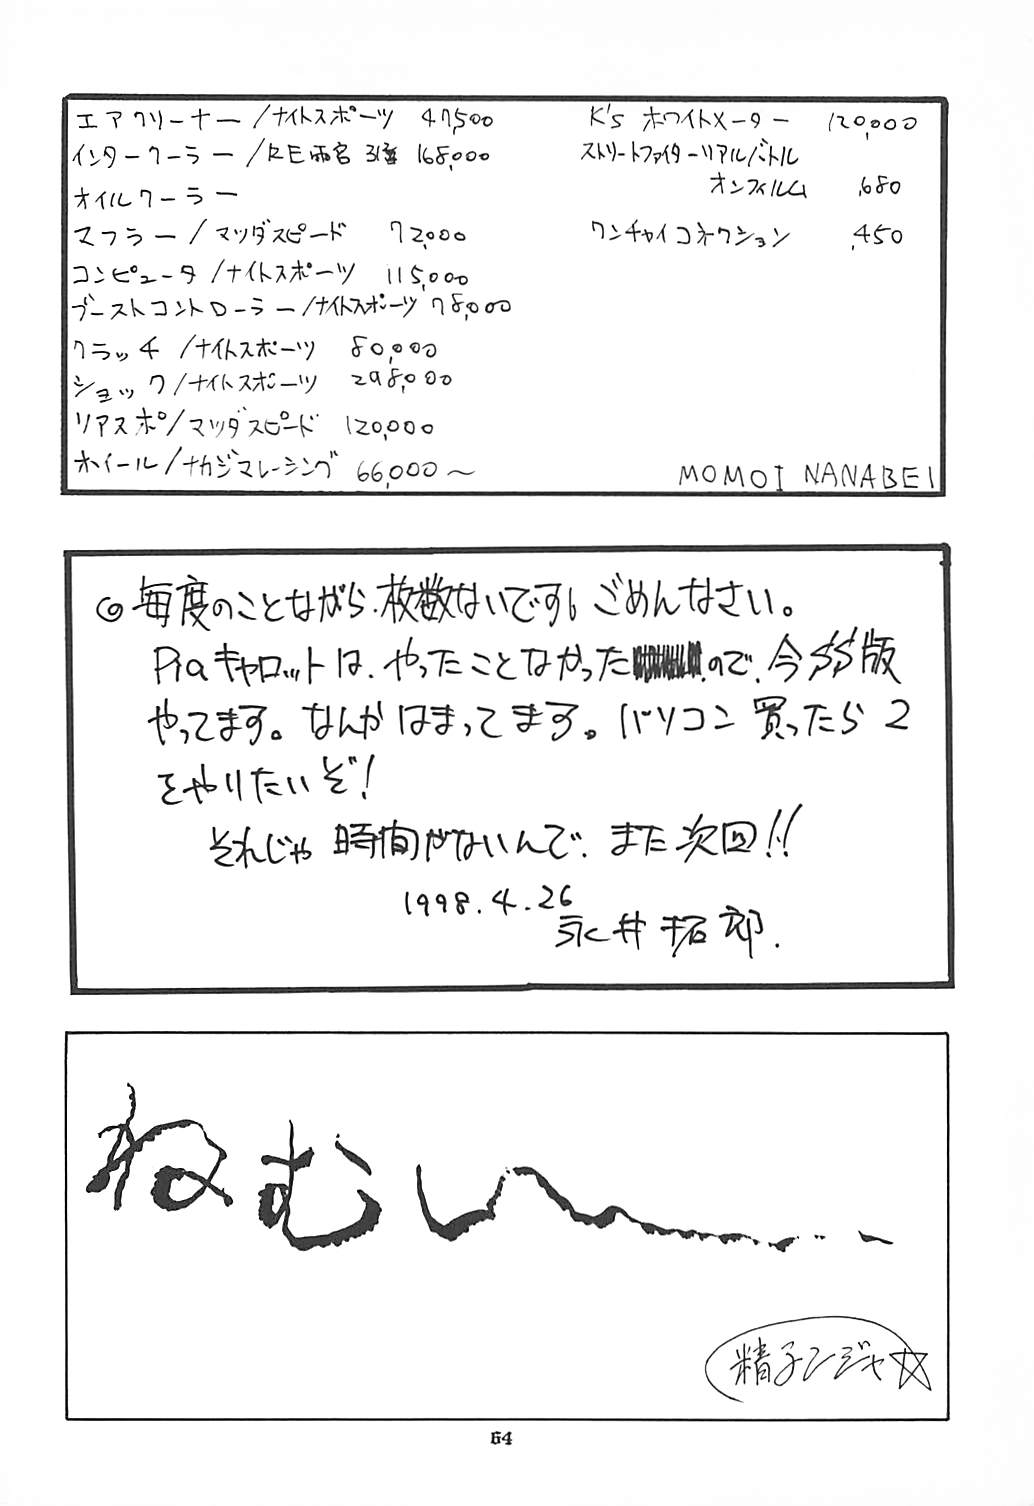 エアクリーナー/ナイトスポーツ 47,500
インタークーラー/RE雨宮 3層 168,000
オイルクーラー
マフラー/マツダスピード 72,000
コンピュータ/ナイトスポーツ 115,000
ブーストコントローラー/ナイトスポーツ 78,000
クラッチ/ナイトスポーツ 80,000
ショック/ナイトスポーツ 298,000
リアスポ/マツダスピード 120,000
ホイール/ナカジマレーシング 66,000〜
K's ホワイトメーター 120,000
ストリートファイターリアルバトル
オンフィルム ,680
ワンチャイコネクション ,450
MOMOI NANABEI
◎毎度のことながら、枚数ないですし、ごめんなさい。
Piaキャロットは、やったことなかったので、今SS版
やってます。なんかはまってます。パソコン買ったら2
をやりたいぞ!
それじゃ時間がないんで、また次回!!
1998.4.26
永井拓郎.
ねむい〜
精子ンジャ☆
64